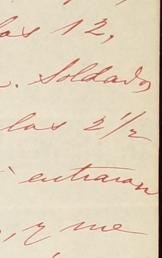 las 12,
. Soldado
las 2 1/2
entraron
, y me